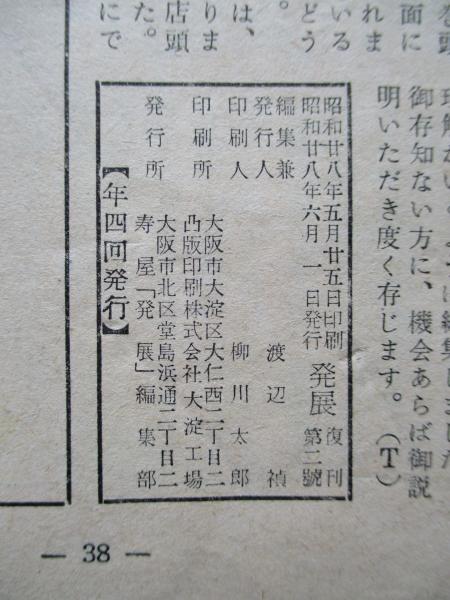 理解がいくように編集しました
御存知ない方に、機会あらば御説
明いただき度く存じます。(T)
巻頭
面に
れま
いる
どう
。
は、
りま
店頭
た。
にで
昭和廿八年五月廿五日印刷
昭和廿八年六月一日発行
発展 復刊第二號
編集兼発行人 渡辺禎
印刷人 柳川太郎
大阪市大淀区大仁西二丁目二
印刷所 凸版印刷株式会社大淀工場
大阪市北区堂島浜通二丁目二
発行所 寿屋「発展」編集部
【年四回発行】
— 38 —